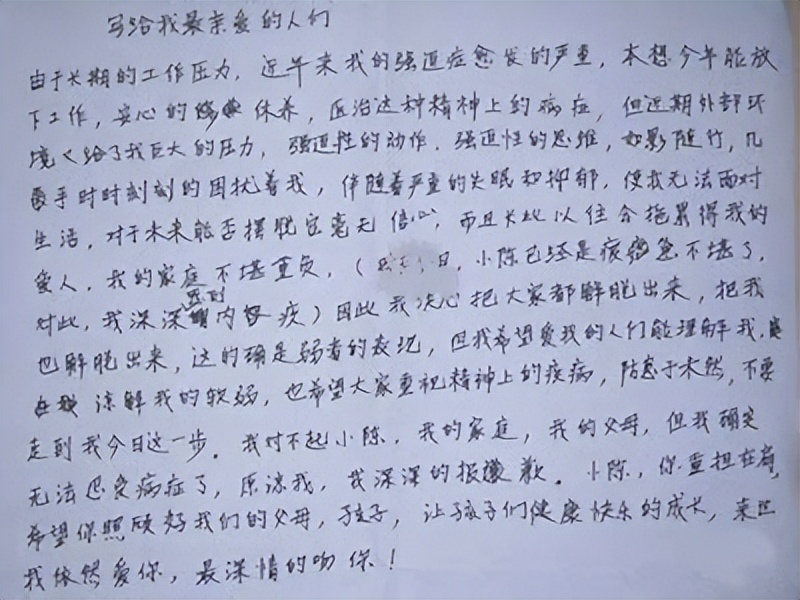 写给我最亲爱的人们
由于长期的工作压力，近年来我的强迫症愈发的严重，本想今年能放
下工作，安心的休养，医治这种精神上的病症，但近期外部环
境又给了我巨大的压力，强迫性的动作．强迫性的思维，如影随行，几
乎时时刻刻的困扰着我，伴随着严重的失眠和抑郁，使我无法面对
生活，对于未来能否摆脱它毫无信心，而且长此以往会拖累得我的
爱人，我的家庭不堪重负，（日，小陈已经是疲惫不堪了，
对此，我深深感到内疚）因此我决心把大家都解脱出来，把我
也解脱出来，这的确是弱者的表现，但我希望爱我的人们能理解我，
谅解我的软弱，也希望大家重视精神上的疾病，防患于未然，不要
走到我今日这一步。我对不起小陈，我的家庭，我的父母，但我确实
无法忍受病症了，原谅我，我深深的报歉。小陈，你重担在肩，
希望你照顾好我们的父母，孩子，让孩子们健康快乐的成长，来世
我依然爱你，最深情的吻你！